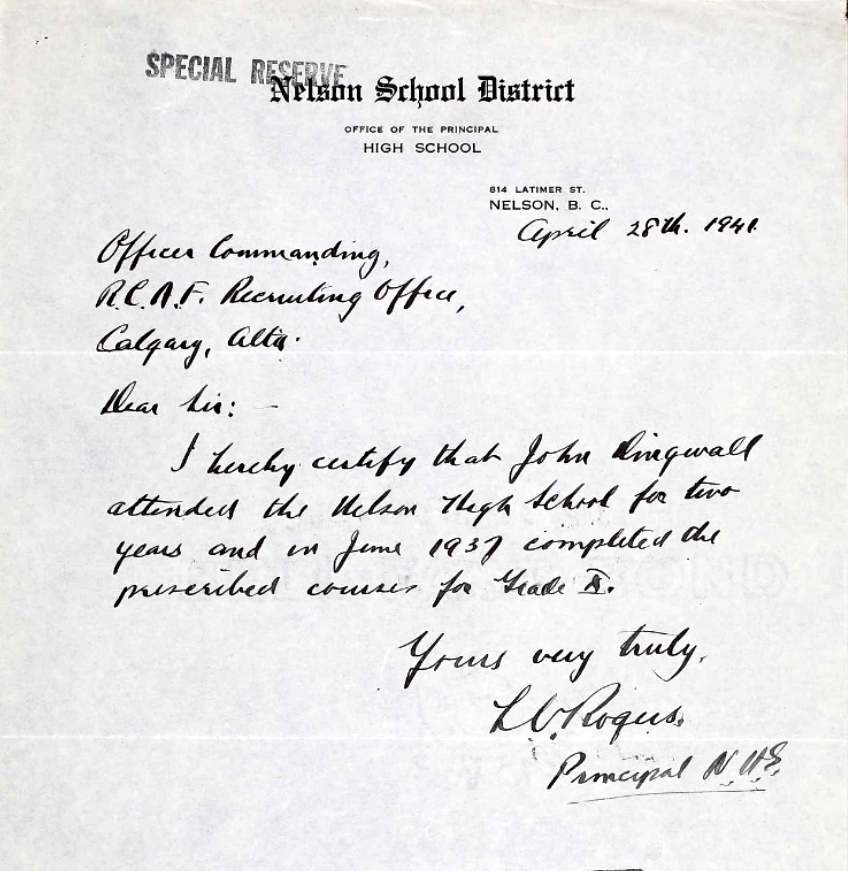 SPECIAL RESERVE
Nelson School District
OFFICE OF THE PRINCIPAL
HIGH SCHOOL
814 LATIMER ST.
NELSON, B. C.,
April 28th. 1941.
Officer Commanding,
R.C.A.F. Recruiting Office,
Calgary, Alta.
Dear Sir: -
I hereby certify that John Dingwall
attended the Nelson High School for two
years and in June 1937 completed the
prescribed courses for Grade X.
Yours very truly,
L V. Rogers.
Principal N.H.S.